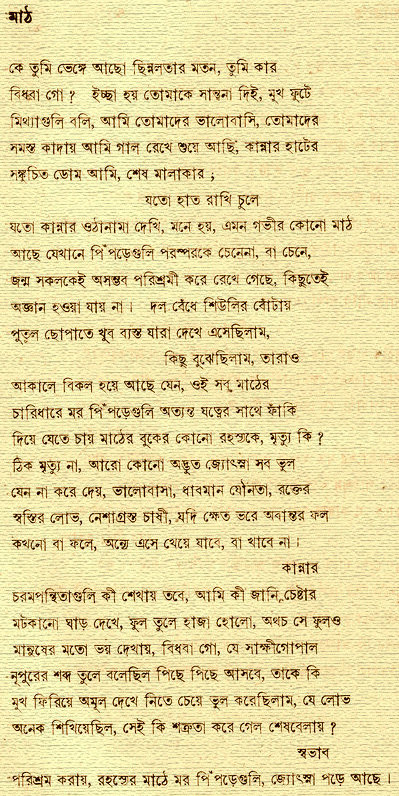 মাঠ
কে তুমি ভেঙ্গে আছো ছিন্নলতার মতন, তুমি কার
বিধবা গো ? ইচ্ছা হয় তোমাকে সান্ত্বনা দিই, মুখ ফুটে
মিথ্যাগুলি বলি, আমি তোমাদের ভালোবাসি, তোমাদের
সমস্ত কাদায় আমি গাল রেখে শুয়ে আছি, কান্নার হাটের
সঙ্কুচিত ডোম আমি, শেষ মালাকার ;
যতো হাত রাখি চুলে
যতো কান্নার ওঠানামা দেখি, মনে হয়, এমন গভীর কোনো মাঠ
আছে যেখানে পিঁপড়েগুলি পরস্পরকে চেনেনা, বা চেনে,
জন্ম সকলকেই অসম্ভব পরিশ্রমী করে রেখে গেছে, কিছুতেই
অজ্ঞান হওয়া যায় না । দল বেঁধে শিউলির বোঁটায়
পুতুল ছোপাতে খুব ব্যস্ত যারা দেখে এসেছিলাম,
কিছু বুঝেছিলাম, তারাও
আকালে বিকল হয়ে আছে যেন, ওই সব মাঠের
চারিধারে মর পিঁপড়েগুলি অত্যন্ত যত্নের সাথে ফাঁকি
দিয়ে যেতে চায় মাঠের বুকের কোনো রহস্যকে, মৃত্যু কি ?
ঠিক মৃত্যু না, আরো কোনো অদ্ভুত জ্যোৎস্না সব ভুল
যেন না করে দেয়, ভালোবাসা, ধাবমান যৌনতা, রক্তের
স্বস্তির লোভ, নেশাগ্রস্ত চাষী, যদি ক্ষেত ভরে অবান্তর ফল
কখনো বা ফলে, অন্যে এসে খেয়ে যাবে, বা খাবে না ।
কান্নার
চরমপন্থিতাগুলি কী শেখায় তবে, আমি কী জানি, চেষ্টার
মটকানো ঘাড় দেখে, ফুল তুলে হাজা হোলো, অথচ সে ফুলও
মানুষের মতো ভয় দেখায়, বিধবা গো, যে সাক্ষীগোপাল
নূপুরের শব্দ তুলে বলেছিল পিছে পিছে আসবে, তাকে কি
মুখ ফিরিয়ে অমূল দেখে নিতে চেয়ে ভুল করেছিলাম, যে লোভ
অনেক শিখিয়েছিল, সেই কি শত্রুতা করে গেল শেষবেলায় ?
স্বভাব
পরিশ্রম করায়, রহস্যের মাঠে মর পিঁপড়েগুলি, জ্যোৎস্না পড়ে আছে ।